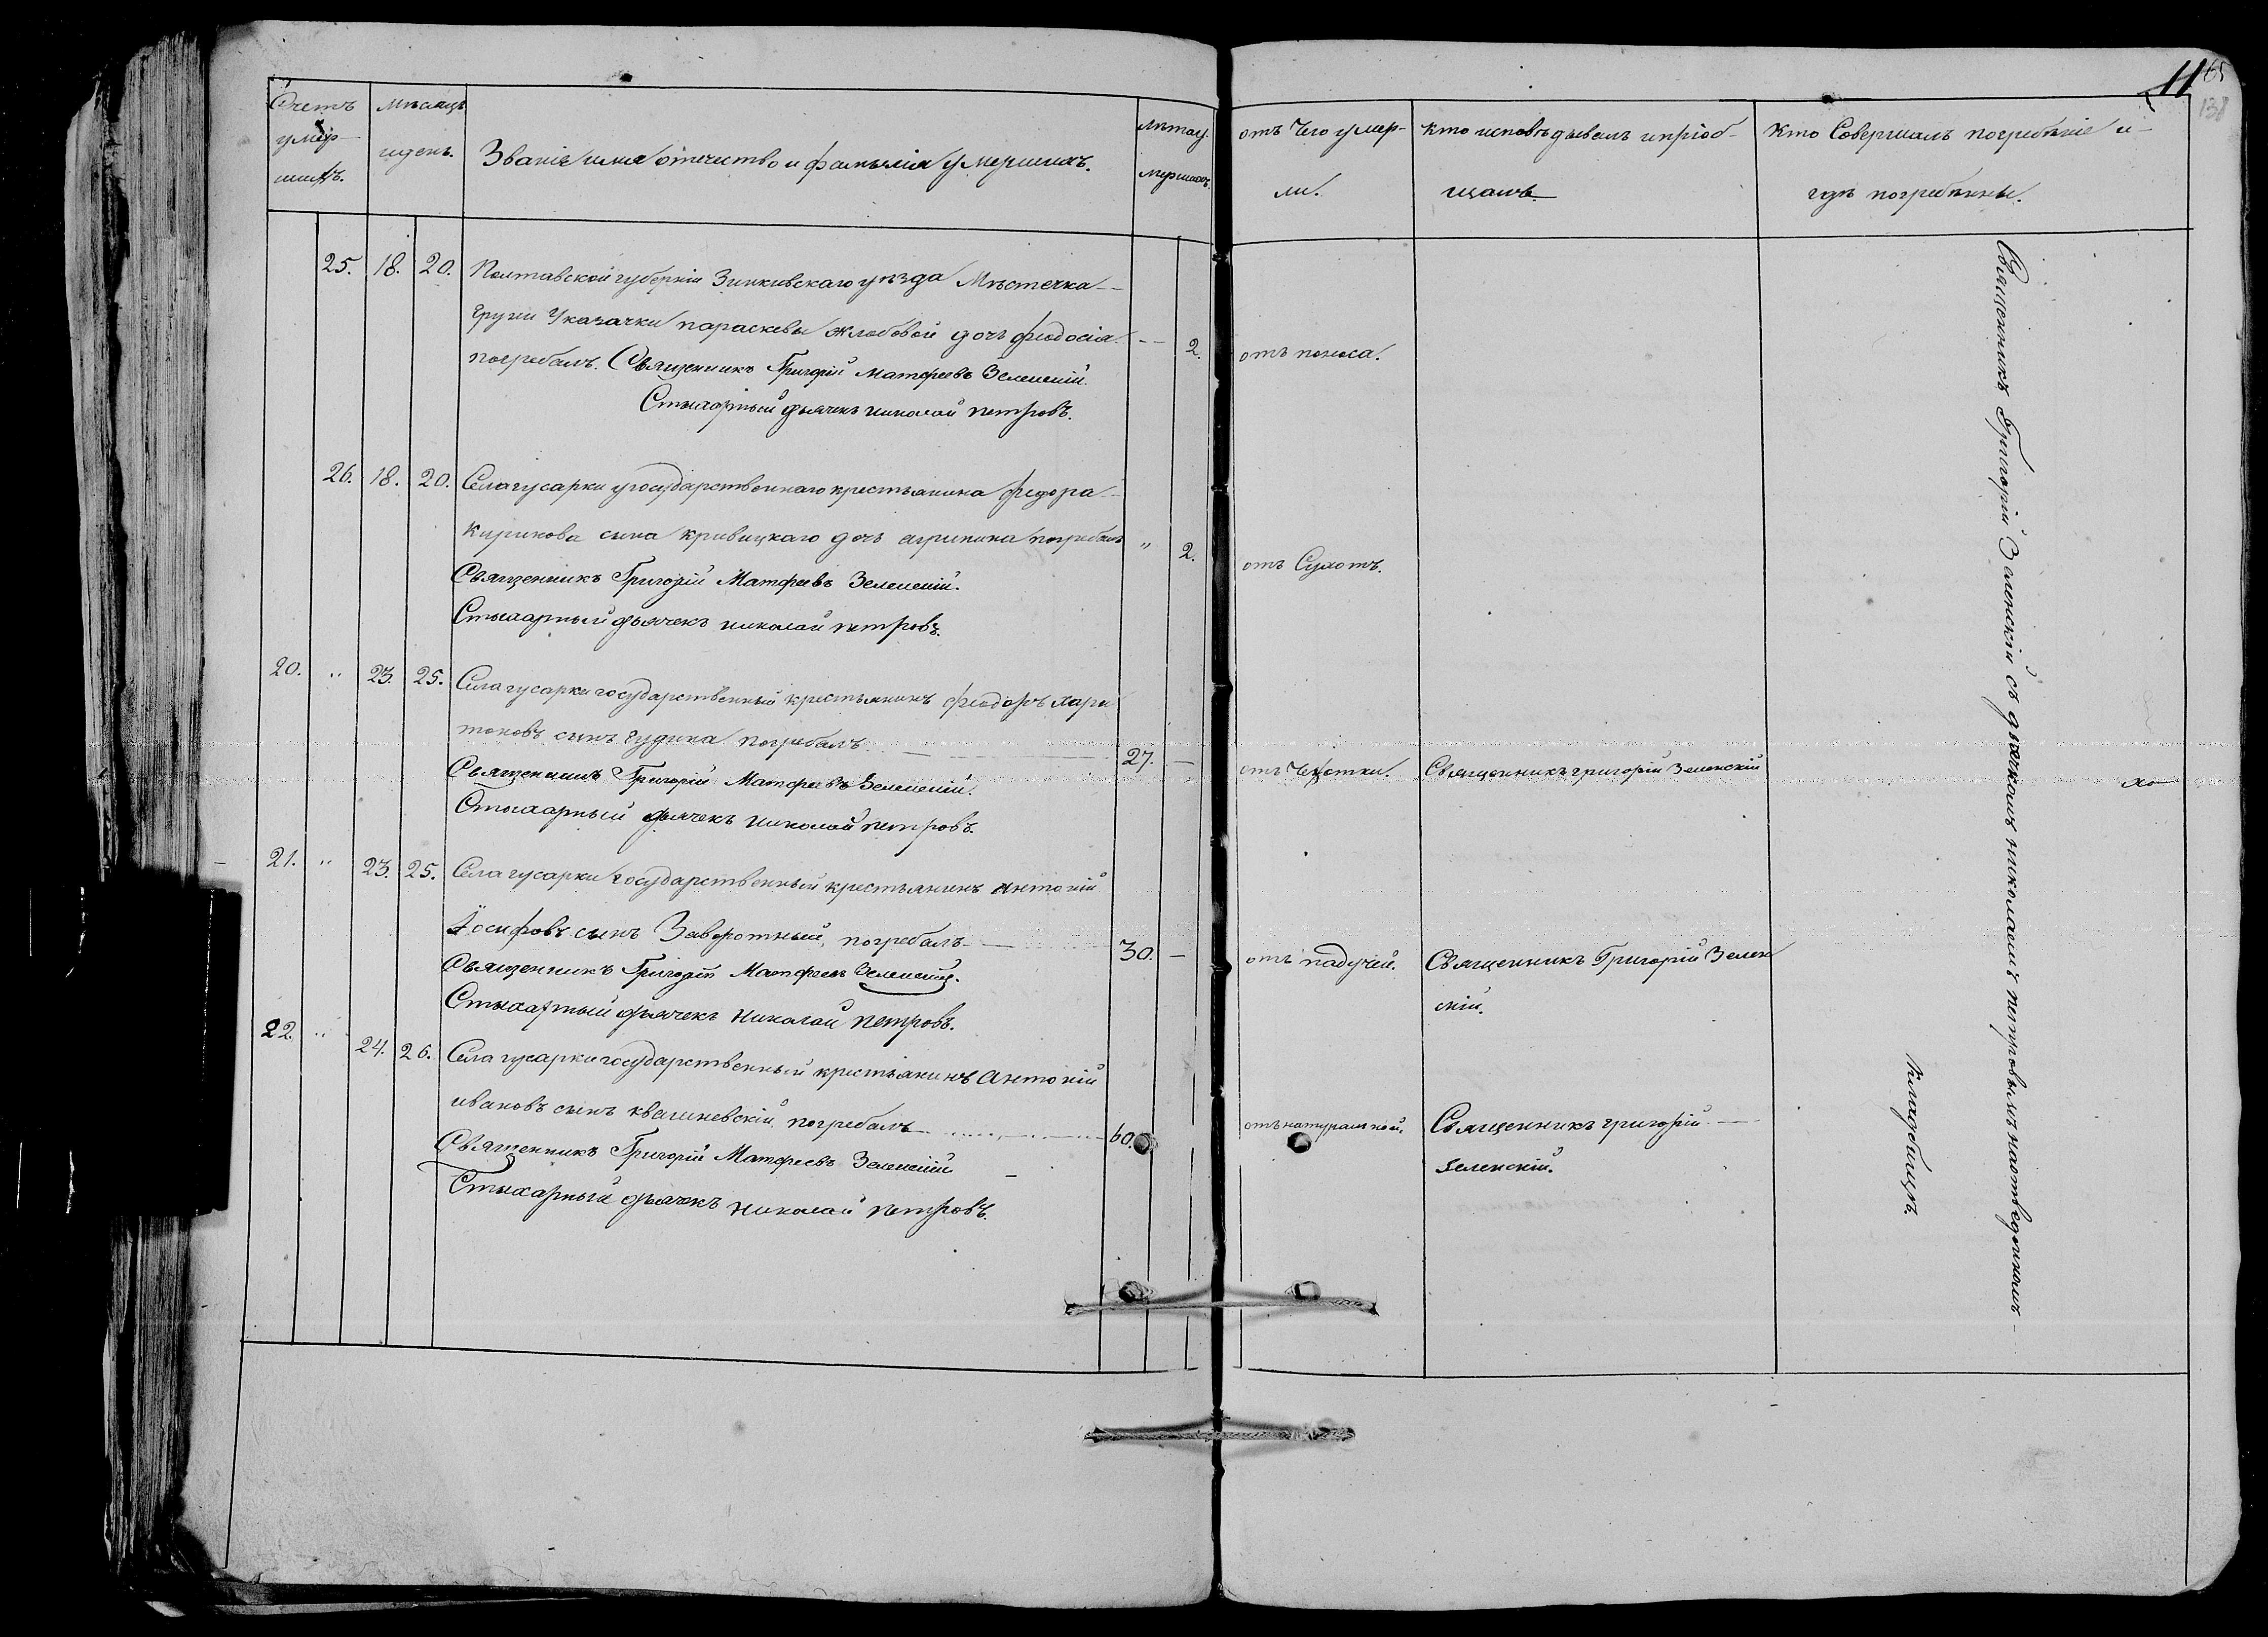 11
65
138
Счетъ умер-
шихъ.
мѣсяцъ
и день.
Званіе имя отечиство и фамылія умершихъ.
лѣта у-
мершихъ.
отъ чего умер-
ли.
кто исповѣдывалъ и пріоб-
щалъ.
Кто Совершалъ погребѣніе и-
гдѣ погребѣны.
25. 18. 20. Полтавской губерніи Зинкивскаго уѣзда Мѣстечка
Груни У казачки параскевы жлобовой дочь феодосіа - 2. отъ поноса.
погребалъ. Священникъ Григорій Матфеевъ Зеленскій.
Стыхарный дьячекъ николай петровъ.
26. 18. 20. Села гусарки у государственнаго крестьянина федора
Кирикова сына кривицкаго дочь агрипина погребалъ " 2. отъ Сухотъ.
Священникъ Григорій Матфеевъ Зеленскій.
Стыхарный дьячекъ николай петровъ.
20. " 23. 25. Села гусарки государственный крестьянинъ феодоръ хари
тоновъ сынъ гудина погребалъ 27. — отъ Чехотки. Священникъ григорій Зеленскій
Священникъ Григорій Матфеевъ Зеленскій.
Стыхарный дьячекъ николай петровъ.
21. " 23. 25. Села гусарки государственный крестьянинъ антоній
Іосифовъ сынъ Заворотный, погребалъ 30. — отъ падучей. Священникъ Григорій Зелен
скій.
Священникъ Григорій Матфеевъ Зеленскій.
Стыхарный дьячекъ николай петровъ.
22. " 24. 26. Села гусарки государственный крестьянинъ Антоній
ивановъ сынъ квашневскій погребалъ 60. отъ натуральной. Священникъ григорій
Зеленскій.
Священникъ Григорій Матфеевъ Зеленскій
Стыхарный дьячекъ николай петровъ.
Священникъ Григорій Зеленскій съ дьячкомъ николаемъ петровымъ на отведенномъ
кладбищѣ.